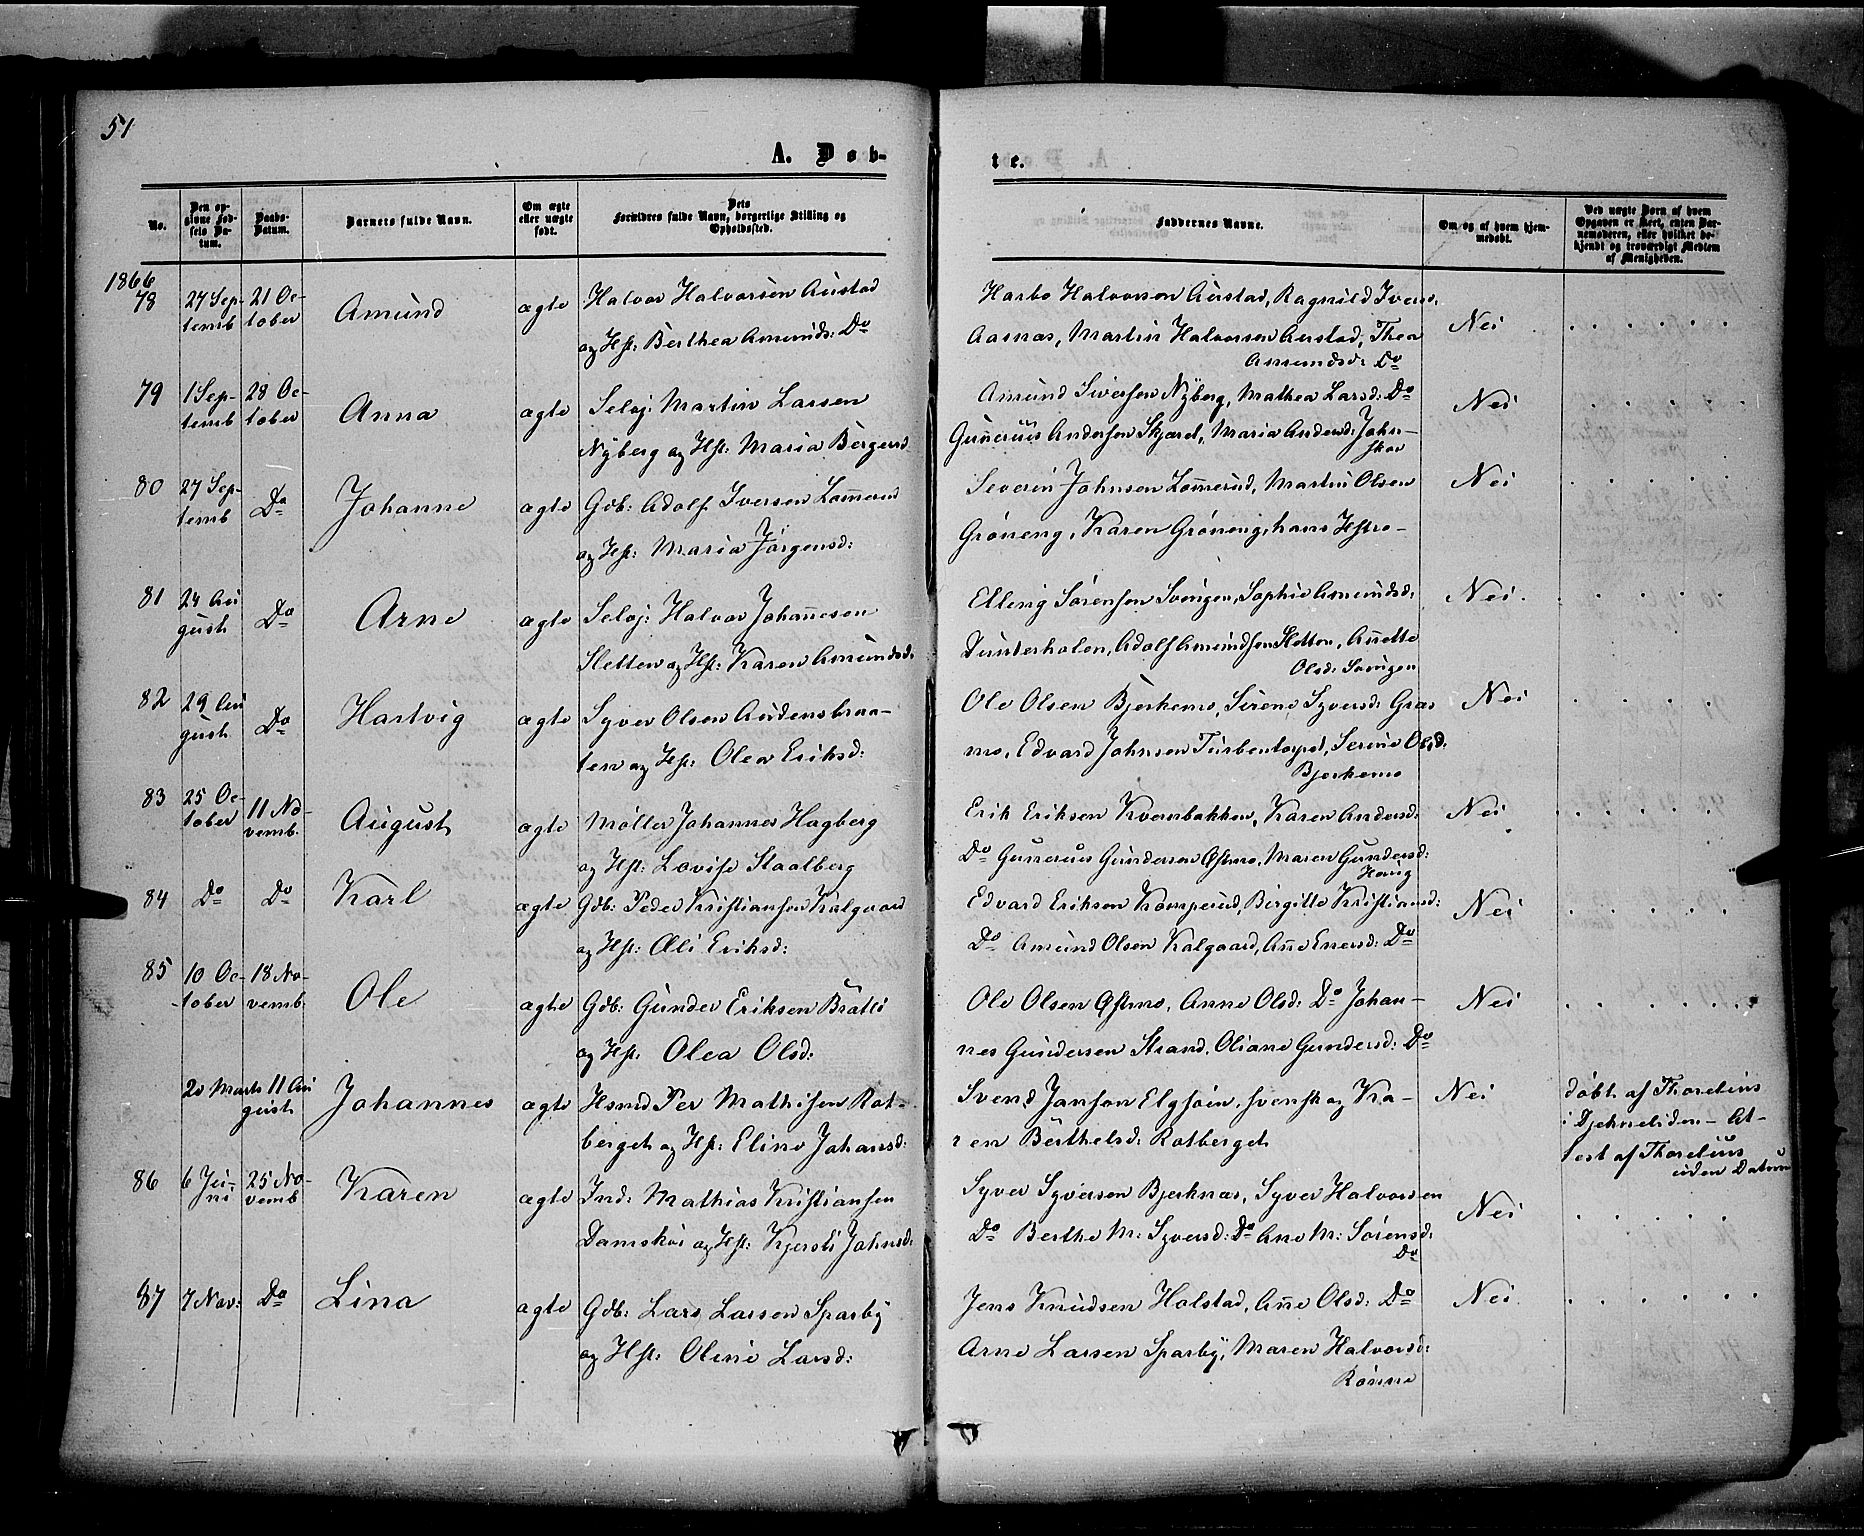 51
A. Døb-
te.
No.
Den opgivne Fødsels Datum.
Daabs-Datum.
Barnets fulde Navn.
Om ægte eller uægte født.
Dets Forældres fulde Navn, borgerlige Stilling og Opholdssted.
Faddernes Navne.
Om og af hvem hjemmedøbt.
Ved uægte Børn af hvem Opgaven er skeet, enten Barnemoderen, eller hvilket bekjendt og troværdigt Medlem af Menigheden.
1866
78 27 Septemb 21 October Amund ægte Halvor Halvorsen Austad
og Hst: Berthea Amunds: Do
Harbo Halvorsen Austad, Ragnild Ivers.
Aasnæs, Martin Halvorsen Austad, Thea
Amundsd: Do
Nei
79 1 Septemb 28 October Anna ægte Selvj: Martin Larsen
Nyberg og Hst: Maria Børgersd
Amund Siversen Nyberg, Mathea Larsd: Do
Gunerius Andersen Skjæret, Maria Andersd: John-
skov
Nei
80 27 Septemb Do Johanne ægte Gdb: Adolf Iversen Lømerud
og Hst: Maria Jørgensd:
Severin Johnsen Lømerud, Martin Olsen
Grøneng, Karen Grøneng, hans Hstro-
Nei
81 24 August Do Arne ægte Selvj: Halvor Johannesen
Sletten og Hst: Karen Amundsd:
Elling Sørensen Svingen, Sophie Amundsd:
Dunderholen, Adolf Amundsen Sletten, Anette
Olsd: Svingen
Nei
82 29 August Do Hartvig ægte Syver Olsen Audensbraa-
ten og Hst: Olea Eriksd:
Ole Olsen Bjerkemo, Sirene Syversd: Græs
mo, Edvard Johnsen Furbentorpet, Serine Olsd:
Bjerkemo
Nei
83 25 October 11 Novemb. August ægte Møller Johannes Hagberg
og Hst: Lovise Staalberg
Erik Eriksen Kvernbakken, Karen Andersd:
Do Gunerius Gundersen Østmo, Maren Gundersd:
Haug
Nei
84 Do Do Karl ægte Gdb: Peder Kristiansen Kalgaard
og Hst: Eli Eriksd:
Edvard Eriksen Kamperud, Birgitte Kristiansd:
Do Amund Olsen Kalgaard, Ane Enersd: Do
Nei
85 10 October 18 Novemb. Ole ægte Gdb: Gunder Eriksen Bratli
og Hst: Olea Olsd:
Ole Olsen Østmo, Anne Olsd: Do Johan-
nes Gundersen Strand, Oliane Gundersd: Do
Nei
20 Marts 11 August Johannes ægte Hsmd Per Mathisen Rot-
berget og Hst: Eline Johansd:
Svend Janson Elgsøin, svensk og Ka-
ren Berthelsd: Rotberget
Nei
døbt af Thorelius
i Djehneliden - At-
test af Thorelius
uden Datum
86 6 Juni 25 Novemb Karen ægte Ind: Mathias Kristiansen
Damskoi og Hst: Kjersti Johnsd:
Syver Syversen Bjerknæs, Syver Halvorsen
Do Berthe M: Syversd: Do Ane M: Sørensd:
Do
Nei
87 7 Nov: Do Lina ægte Gdb: Lars Larsen Sparby
og Hst: Oline Larsd:
Jens Knudsen Holstad, Ane Olsd: Do
Arne Larsen Sparby, Maren Halvorsd:
Rønne
Nei